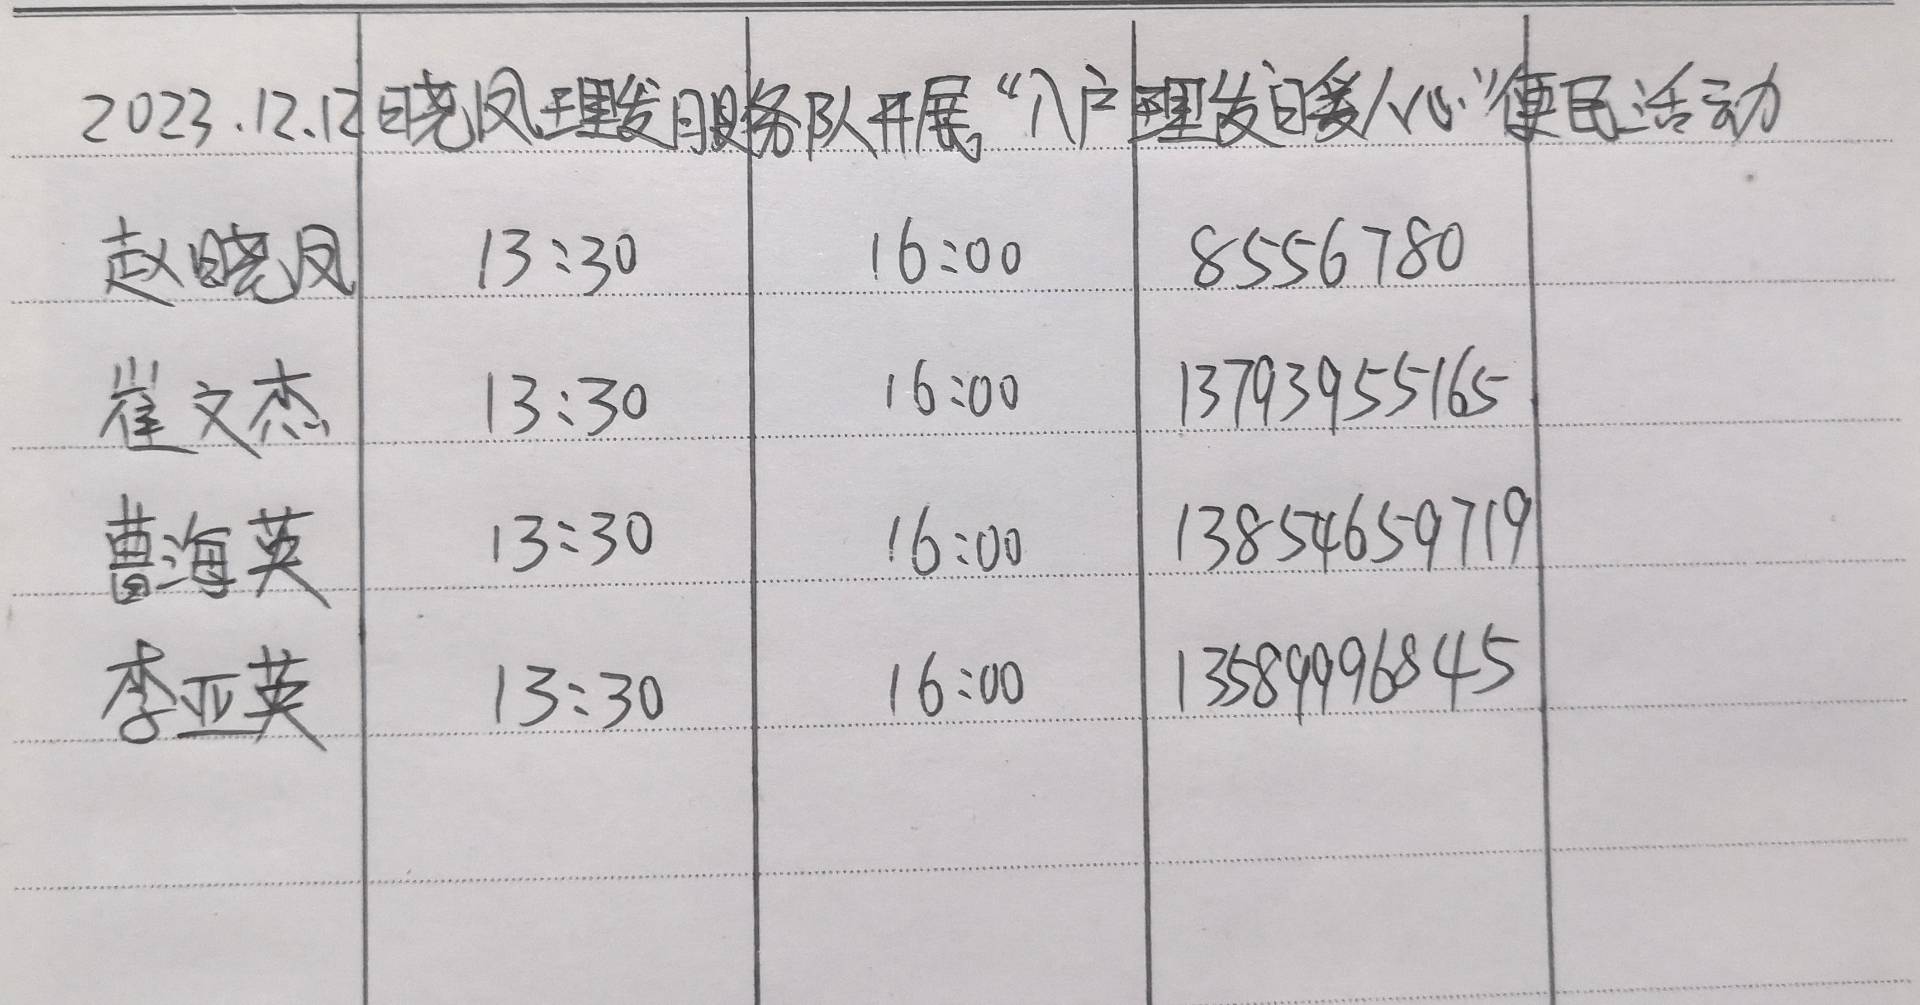 2023.12.12晓凤理发服务队开展“入户理发暖人心”便民活动
赵晓凤 13:30 16:00 8556780
崔文杰 13:30 16:00 13793955165
曹海英 13:30 16:00 13854659719
李亚英 13:30 16:00 13589996845